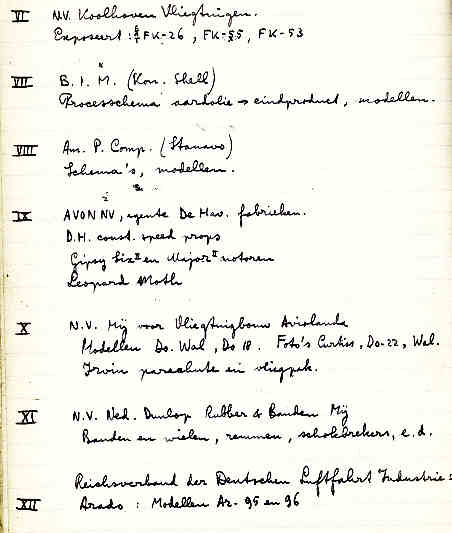 VI N.V. Koolhoven Vliegtuigen.
Exposeert: FK-26, FK-55, FK-53
VII B.I.M. (Kon. Shell)
Processchema aardolie → eindproduct, modellen.
VIII Am. P. Comp. (Stanavo)
Schema's, modellen.
IX AVON NV, agente De Hav. fabrieken.
D.H. const. speed props
Gipsy Six II en Major II motoren
Leopard Moth
X N.V. Mij voor Vliegtuigbouw Aviolanda
Modellen Do. Wal, Do 18. Foto's Curtiss, Do-22, Wal.
Irvin parachute en vliegpak.
XI N.V. Ned. Dunlop Rubber & Banden Mij
Banden en wielen, remmen, schokbrekers, e.d.
Reichsverband der Deutschen Luftfahrt Industrie:
XII Arado: Modellen Ar-95 en 96